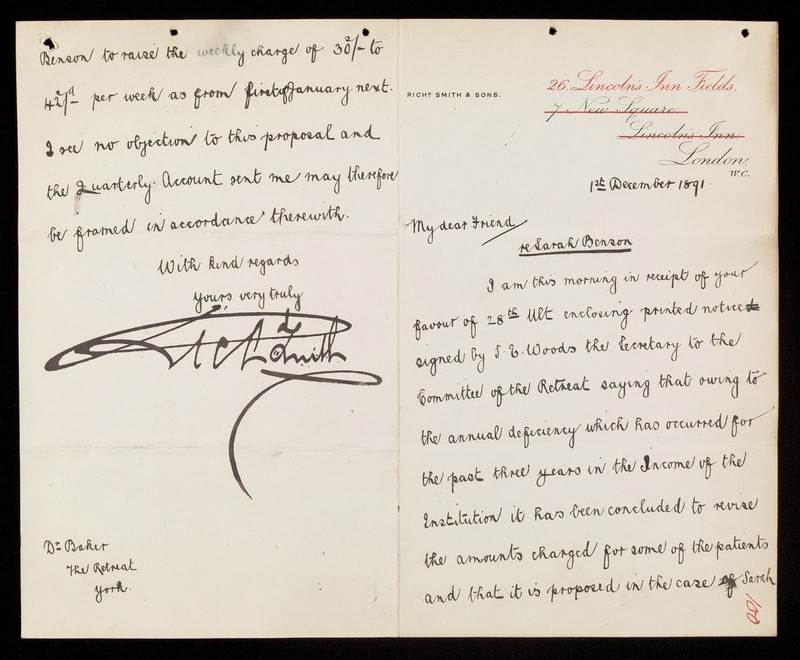 RICHD SMITH & SONS.
26. Lincoln's Inn Fields.
7 New Square.
Lincoln's Inn.
London,
W.C.
1st December 1891.
My dear Friend
re Sarah Benson
I am this morning in receipt of your
favour of 28th Ult enclosing printed notice
signed by S. E. Woods the Secretary to the
Committee of the Retreat saying that owing to
the annual deficiency which has occurred for
the past three years in the Income of the
Institution it has been concluded to revise
the amounts charged for some of the patients
and that it is proposed in the case of Sarah
Benson to raise the weekly charge of 30/- to
42/- per week as from first of January next.
I see no objection to this proposal and
the Quarterly Account sent me may therefore
be framed in accordance therewith.
With kind regards
yours very truly
Richd Smith
Dr Baker
The Retreat
York.